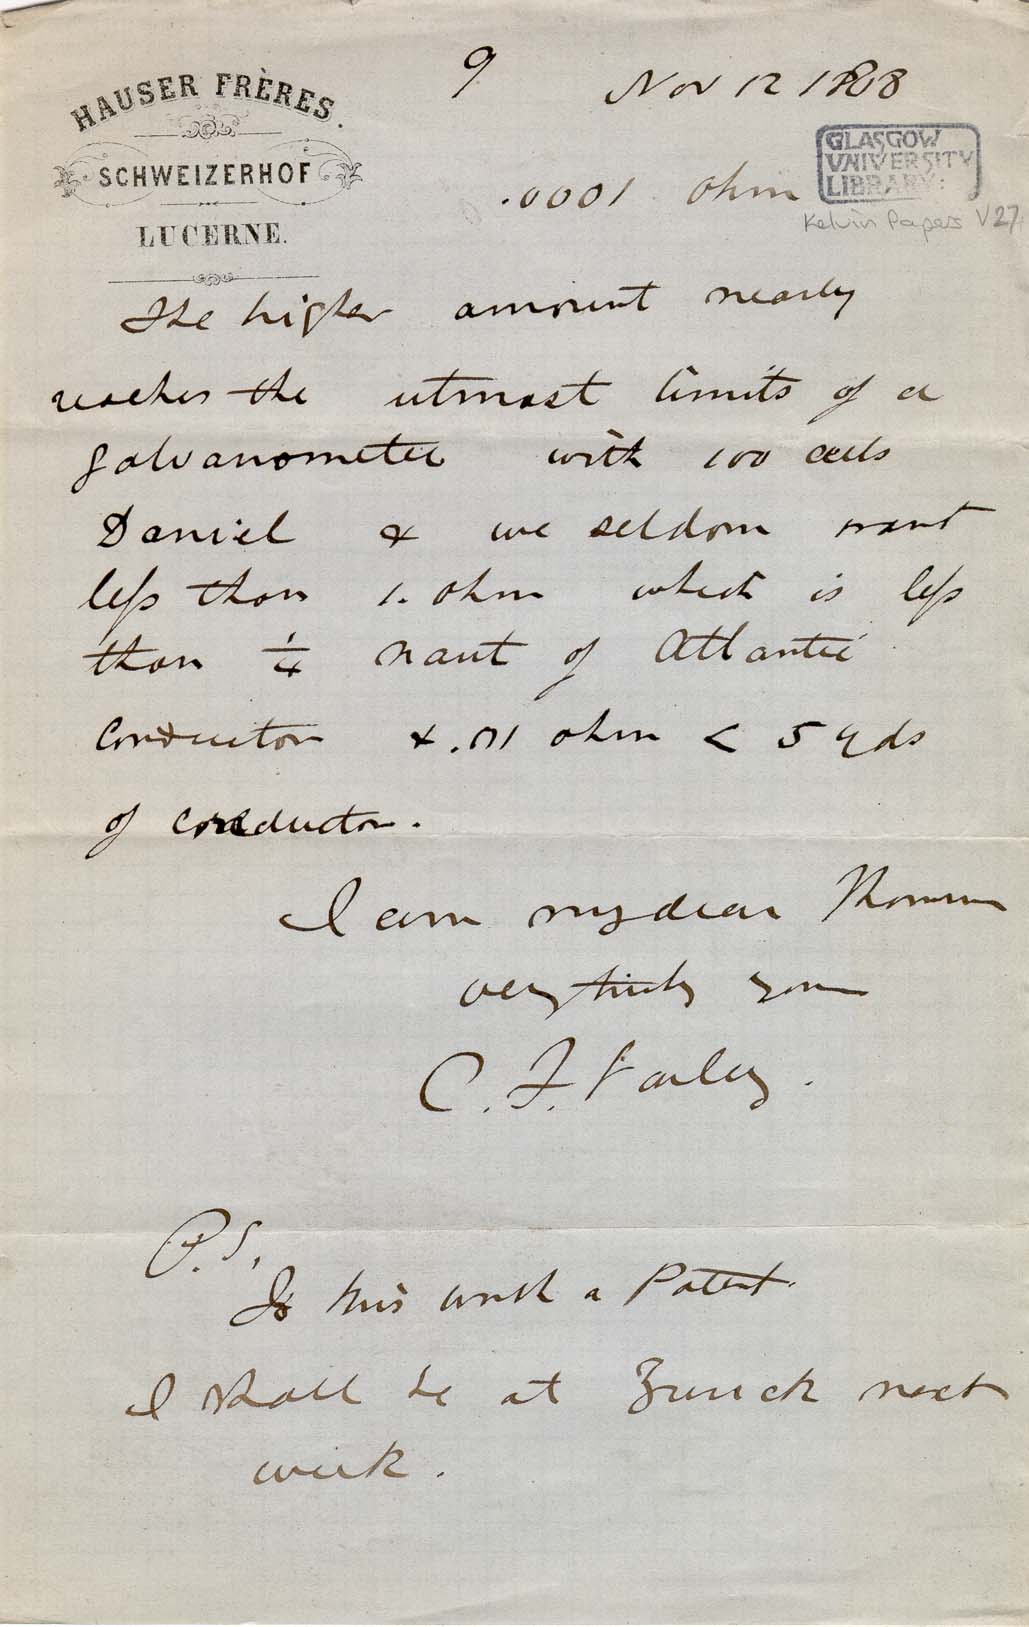 HAUSER FRÈRES.
SCHWEIZERHOF
LUCERNE.
9
Nov 12 1868
GLASGOW
UNIVERSITY
LIBRARY:
Kelvin Papers V27
.0001 ohm
The higher amount nearly
reaches the utmost limits of a
galvanometer with 100 cells
Daniel & we seldom want
less than 1. ohm which is less
than 1/4 naut of Atlantic
Conductor & .01 ohm < 5 yds
of conductor.
I am my dear Thomson
very truly yours
C. F. Varley.
P.S.
Is this worth a Patent.
I shall be at Zurich next
week.